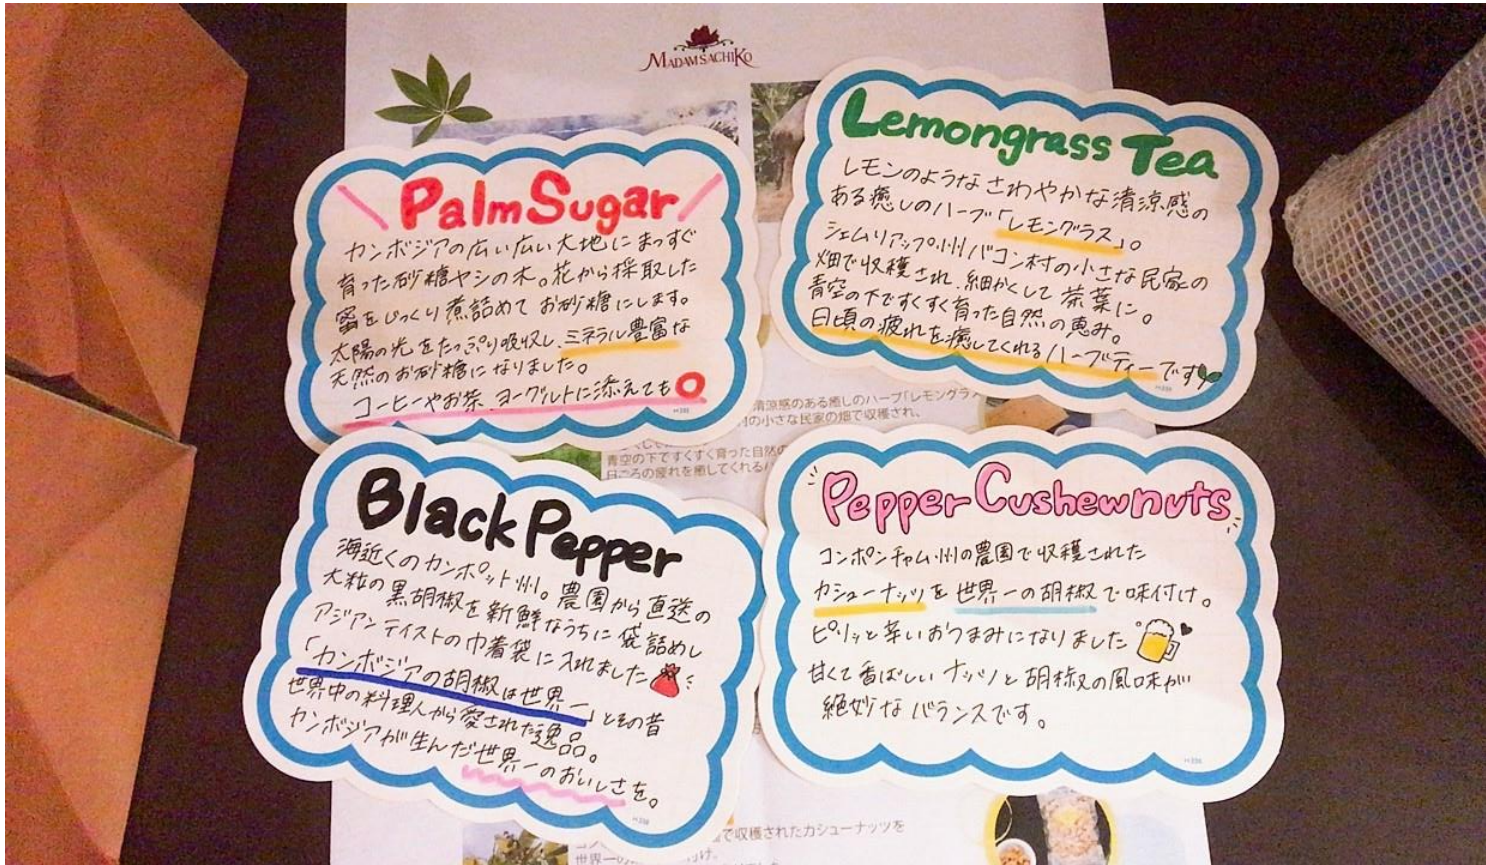 MADAM SACHIKO
Palm Sugar
カンボジアの広い広い大地にまっすぐ
育った砂糖ヤシの木。花から採取した
蜜をじっくり煮詰めてお砂糖にします。
太陽の光をたっぷり吸収し、ミネラル豊富な
天然のお砂糖になりました。
コーヒーやお茶、ヨーグルトに添えても〇
Lemongrass Tea
レモンのようなさわやかな清涼感の
ある癒しのハーブ「レモングラス」。
シェムリアップ州バコン村の小さな民家の
畑で収穫され、細かくして茶葉に。
青空の下ですくすく育った自然の恵み。
日頃の疲れを癒してくれるハーブティーです
清涼感のある癒しのハーブ「レモングラ
村の小さな民家の畑で収穫され、
青空の下ですくすく育った自然の
日ごろの疲れを癒してくれるハ
Black Pepper
海近くのカンポット州。農園から直送の
大粒の黒胡椒を新鮮なうちに袋詰めし
アジアンテイストの巾着袋に入れました
「カンボジアの胡椒は世界一」とその昔
世界中の料理人から愛された逸品。
カンボジアが生んだ世界一のおいしさを。
Pepper Cushewnuts
コンポンチャム州の農園で収穫された
カシューナッツを世界一の胡椒で味付け。
ピリッと辛いおつまみになりました
甘くて香ばしいナッツと胡椒の風味が
絶妙なバランスです。
で収穫されたカシューナッツを
世界一の